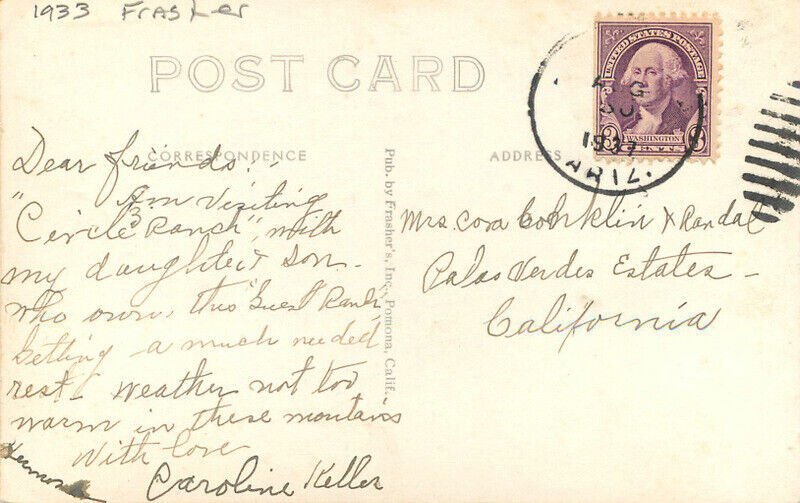 1933 Frasher
POST CARD
CORRESPONDENCE
ADDRESS
UNITED STATES POSTAGE
3 WASHINGTON 3
CENTS
AUG
30
19
ARIZ.
Dear friends.-
Am visiting
"Circle 3 Ranch", with
my daughter & son-
who own, this "Guest Ranch"
Getting a much needed
rest - Weather not too
warm in these mountains
With love
Caroline Keller
Pub. by Frasher's, Inc., Pomona, Calif.
Mrs. Cora Conklin & Randal
Palos Verdes Estates -
California